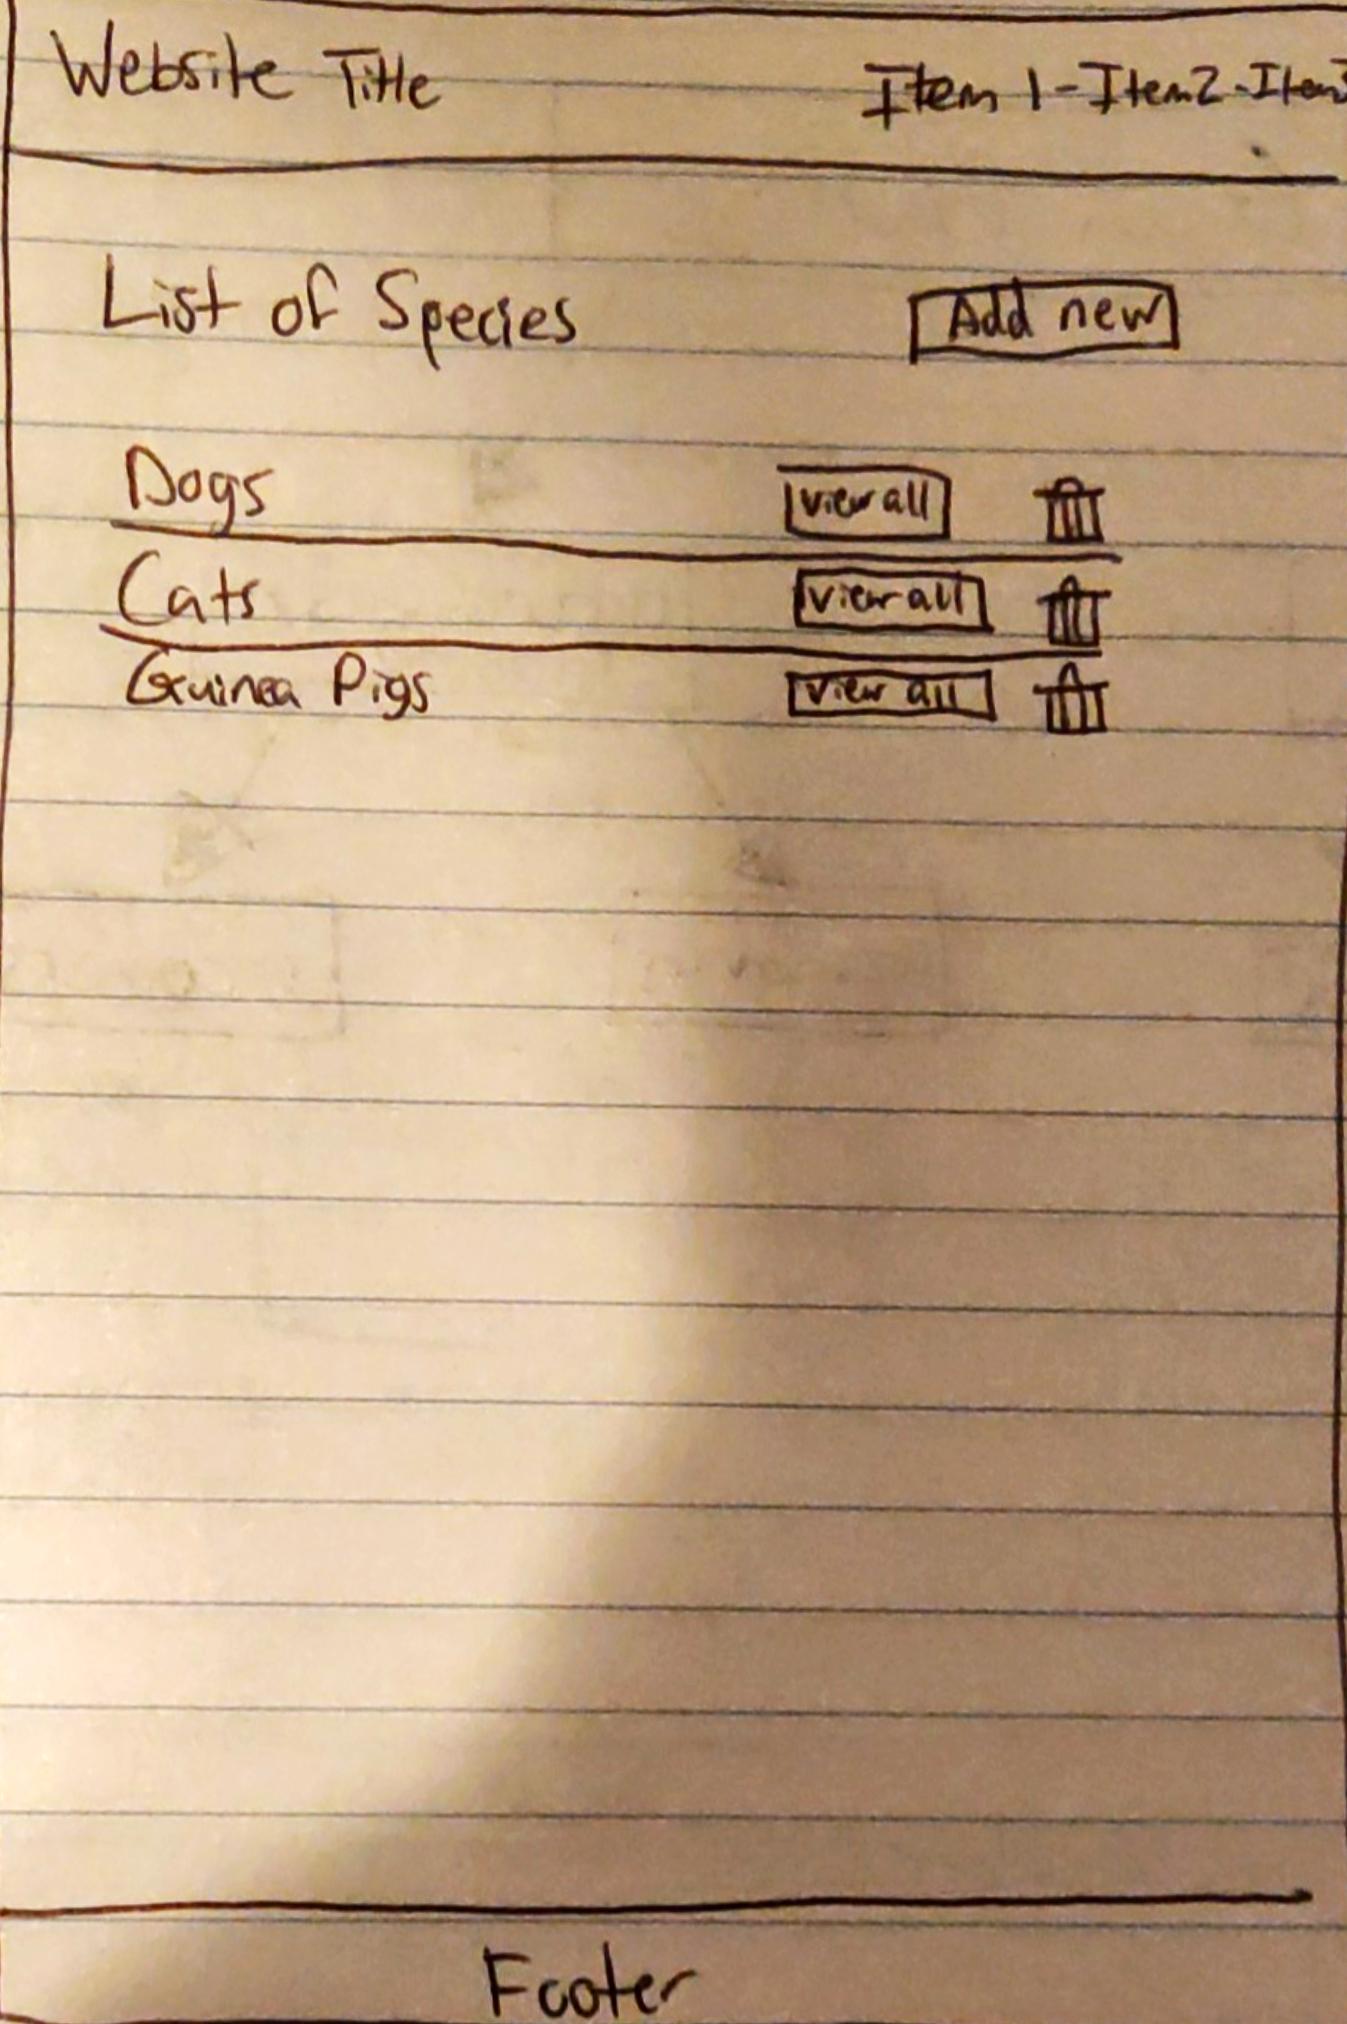 Website Title Item 1-Item2-Item3
List of Species Add new
Dogs view all
Cats view all
Guinea Pigs view all
Footer